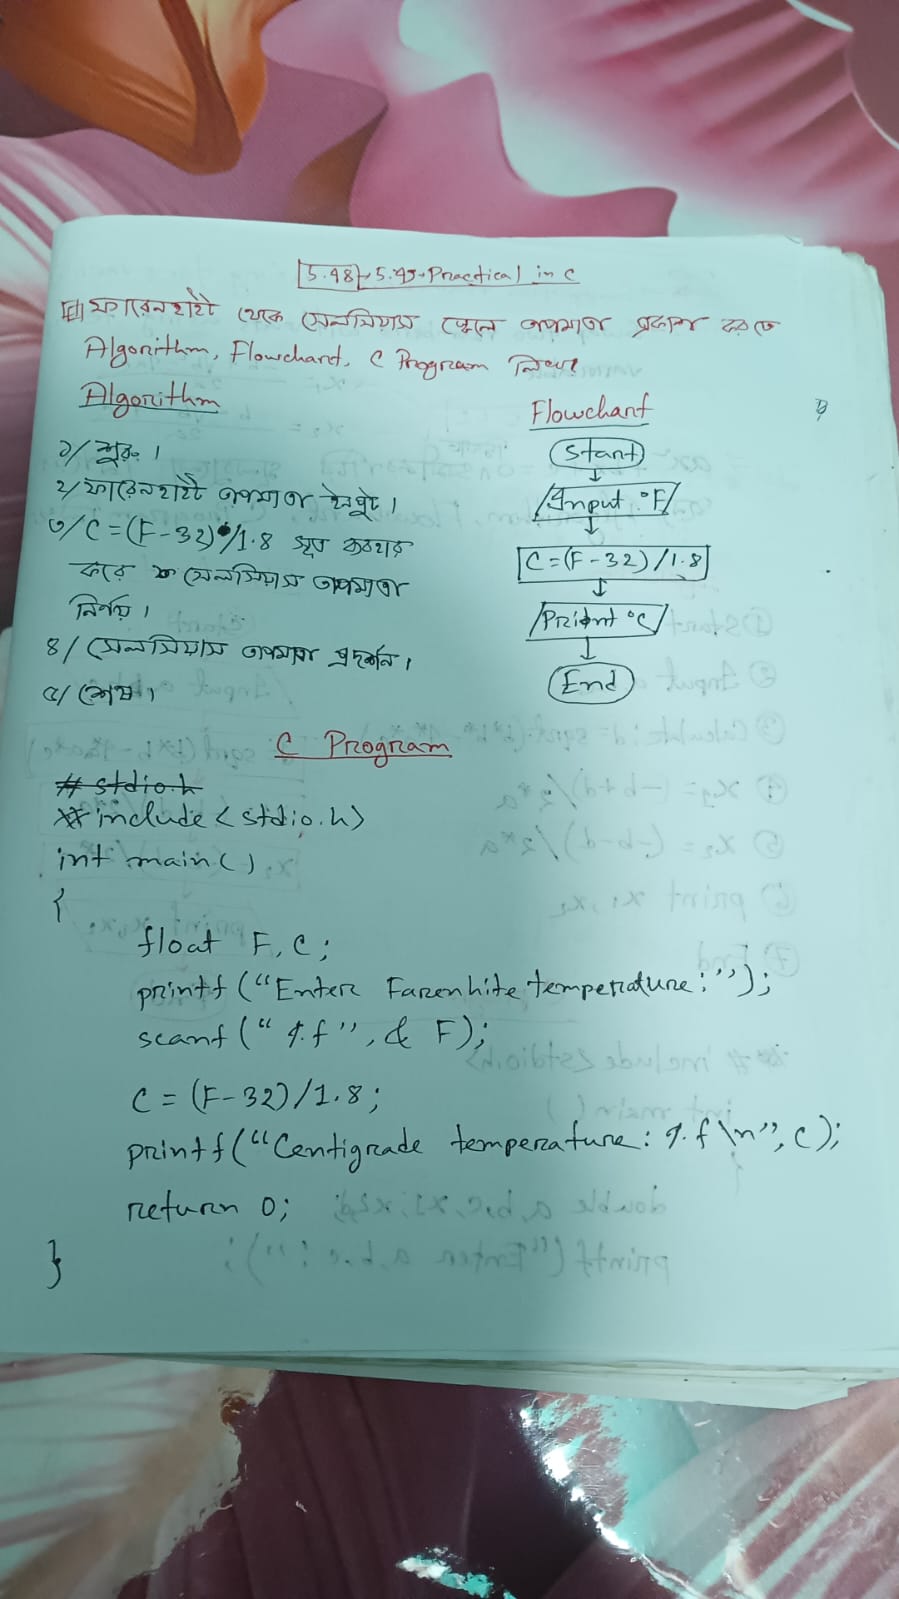 5.48 → 5.49 → Practical in C
ফারেনহাইট থেকে সেলসিয়াস স্কেলে তাপমাত্রা প্রকাশ করতে
Algorithm, Flowchart, C Program লিখ।
Algorithm
১/ শুরু।
২/ ফারেনহাইট তাপমাত্রা ইনপুট।
৩/ C = (F - 32) /1.8 সূত্র ব্যবহার
করে সেলসিয়াস তাপমাত্রা
নির্ণয়।
৪/ সেলসিয়াস তাপমাত্রা প্রদর্শন।
৫/ শেষ।
Flowchart
Start
Input °F
C = (F - 32) /1.8
Print °C
End
C Program
# stdio.h
# include < stdio.h>
int main ( )
{
float F, C;
printf (“Enter Farenhite temperature: ”);
scanf (“ %f ”, & F);
C = (F - 32) /1.8;
printf (“Centigrade temperature: %f \n”, C);
return 0;
}